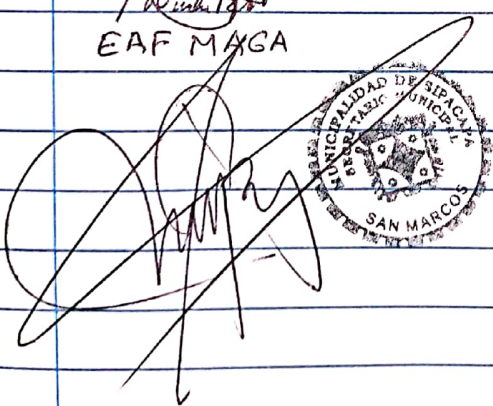 EAF MAGA
MUNICIPALIDAD DE SIPACAPA
SECRETARIO MUNICIPAL
SAN MARCOS